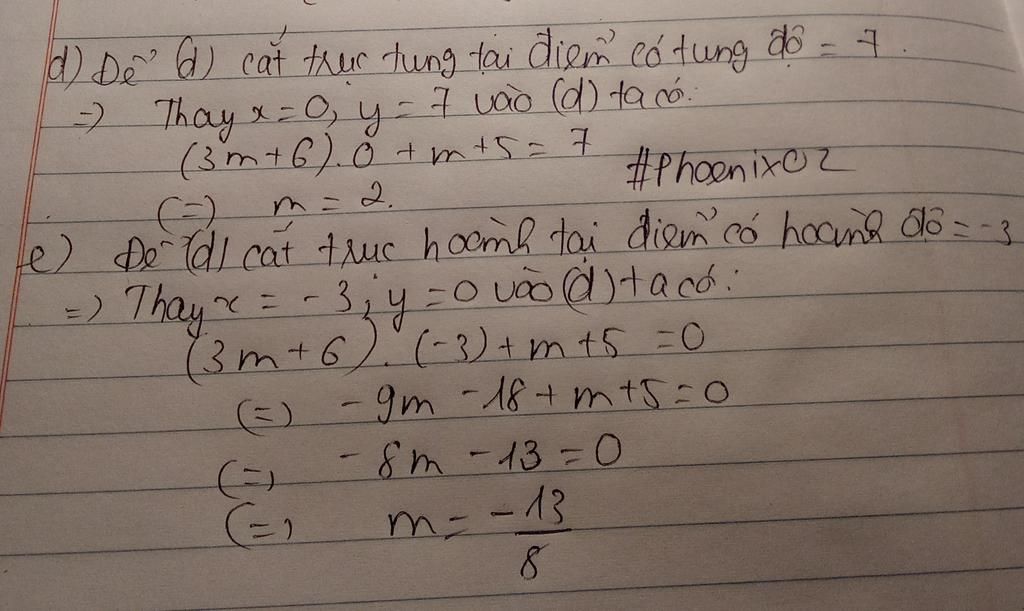 d) Để (d) cắt trục tung tại điểm có tung độ = 7.
=) Thay x = 0, y = 7 vào (d) ta có:
(3m+6).0 + m+5 = 7
#Phoenix02
(=) m = 2.
e) Để (d) cắt trục hoành tại điểm có hoành độ = -3
=) Thay x = -3, y = 0 vào (d) ta có:
(3m+6).(-3)+m+5 = 0
(=) -9m -18+m+5=0
(=) -8m -13 = 0
(=) m = -13/8